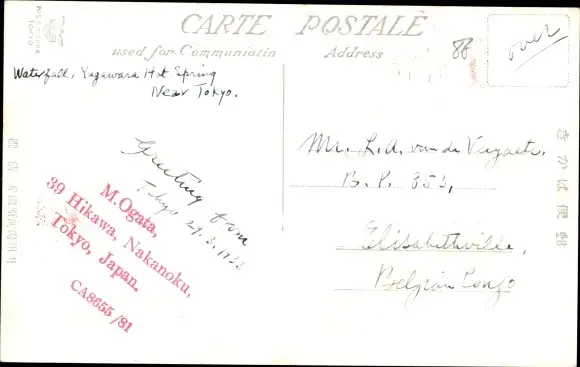 CARTE POSTALE
used for Communicatin
Address
TOKYO
86
over
Waterfall, Yugawara Hot Spring
Near Tokyo.
Greeting from
Tokyo 29.3.1933
M.Ogata,
39 Hikawa, Nakanoku,
Tokyo, Japan.
CA8655/81
Mr. L.A. van de Vegaete,
B.P. 853,
Elisabethville,
Belgian Congo
きかは便郵